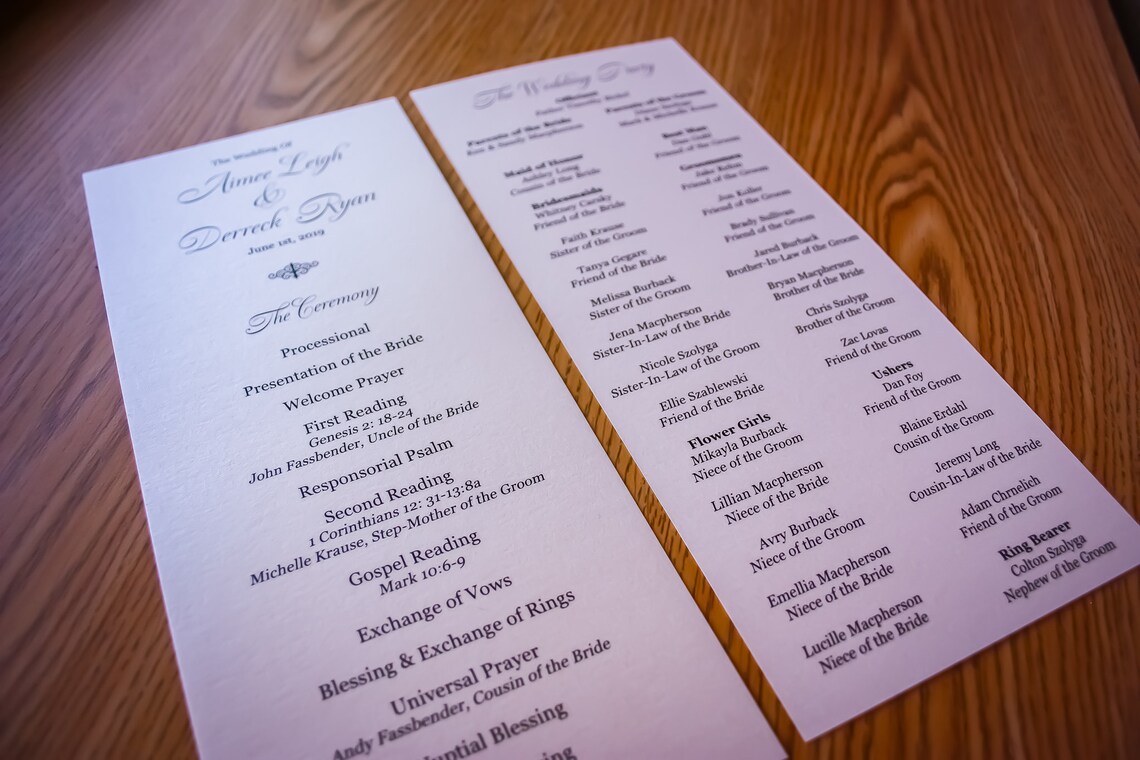 The Wedding Of
Aimee Leigh
&
Derreck Ryan
June 1st, 2019
The Ceremony
Processional
Presentation of the Bride
Welcome Prayer
First Reading
Genesis 2: 18-24
John Fassbender, Uncle of the Bride
Responsorial Psalm
Second Reading
1 Corinthians 12: 31-13:8a
Michelle Krause, Step-Mother of the Groom
Gospel Reading
Mark 10:6-9
Exchange of Vows
Blessing & Exchange of Rings
Universal Prayer
Andy Fassbender, Cousin of the Bride
Nuptial Blessing
The Wedding Party
Officiant
Father Timothy
Parents of the Bride
Ken & Sandy Macpherson
Maid of Honor
Ashley Long
Cousin of the Bride
Bridesmaids
Whitney Carsky
Friend of the Bride
Faith Krause
Sister of the Groom
Tanya Gegare
Friend of the Bride
Melissa Burback
Sister of the Groom
Jena Macpherson
Sister-In-Law of the Bride
Nicole Szolyga
Sister-In-Law of the Groom
Ellie Szablewski
Friend of the Bride
Flower Girls
Mikayla Burback
Niece of the Groom
Lillian Macpherson
Niece of the Bride
Avry Burback
Niece of the Groom
Emellia Macpherson
Niece of the Bride
Lucille Macpherson
Niece of the Bride
Parents of the Groom
Mark & Michelle Krause
Best Man
Friend of the Groom
Groomsmen
Jake
Friend of the Groom
Jon Koller
Friend of the Groom
Brady Sullivan
Friend of the Groom
Jared Burback
Brother-In-Law of the Groom
Bryan Macpherson
Brother of the Bride
Chris Szolyga
Brother of the Groom
Zac Lovas
Friend of the Groom
Ushers
Dan Foy
Friend of the Groom
Blaine Erdahl
Cousin of the Groom
Jeremy Long
Cousin-In-Law of the Bride
Adam Chrnelich
Friend of the Groom
Ring Bearer
Colton Szolyga
Nephew of the Groom